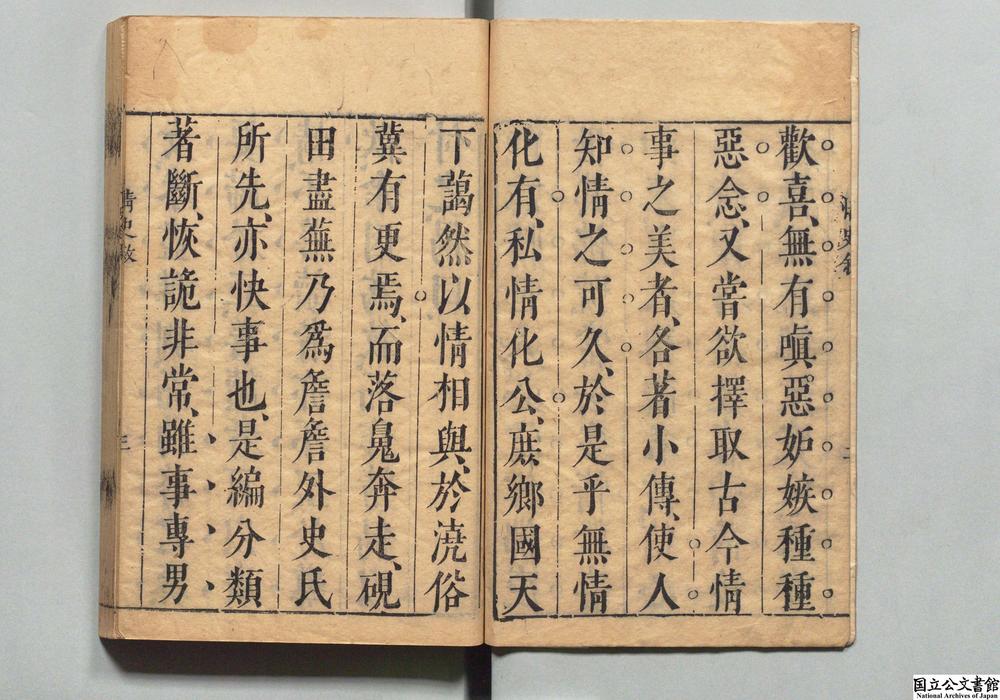 歡喜、無有嗔惡妒嫉種種
惡念、又嘗欲擇取古今情
事之美者、各著小傳、使人
知情之可久、於是乎無情
化有、私情化公、庶鄉國天
下藹然以情相與、於澆俗
冀有更焉、而落魄奔走、硯
田盡蕪乃爲詹詹外史氏
所先、亦快事也、是編分類
著斷、恢詭非常、雖事專男
情史敘
三
国立公文書館
National Archives of Japan